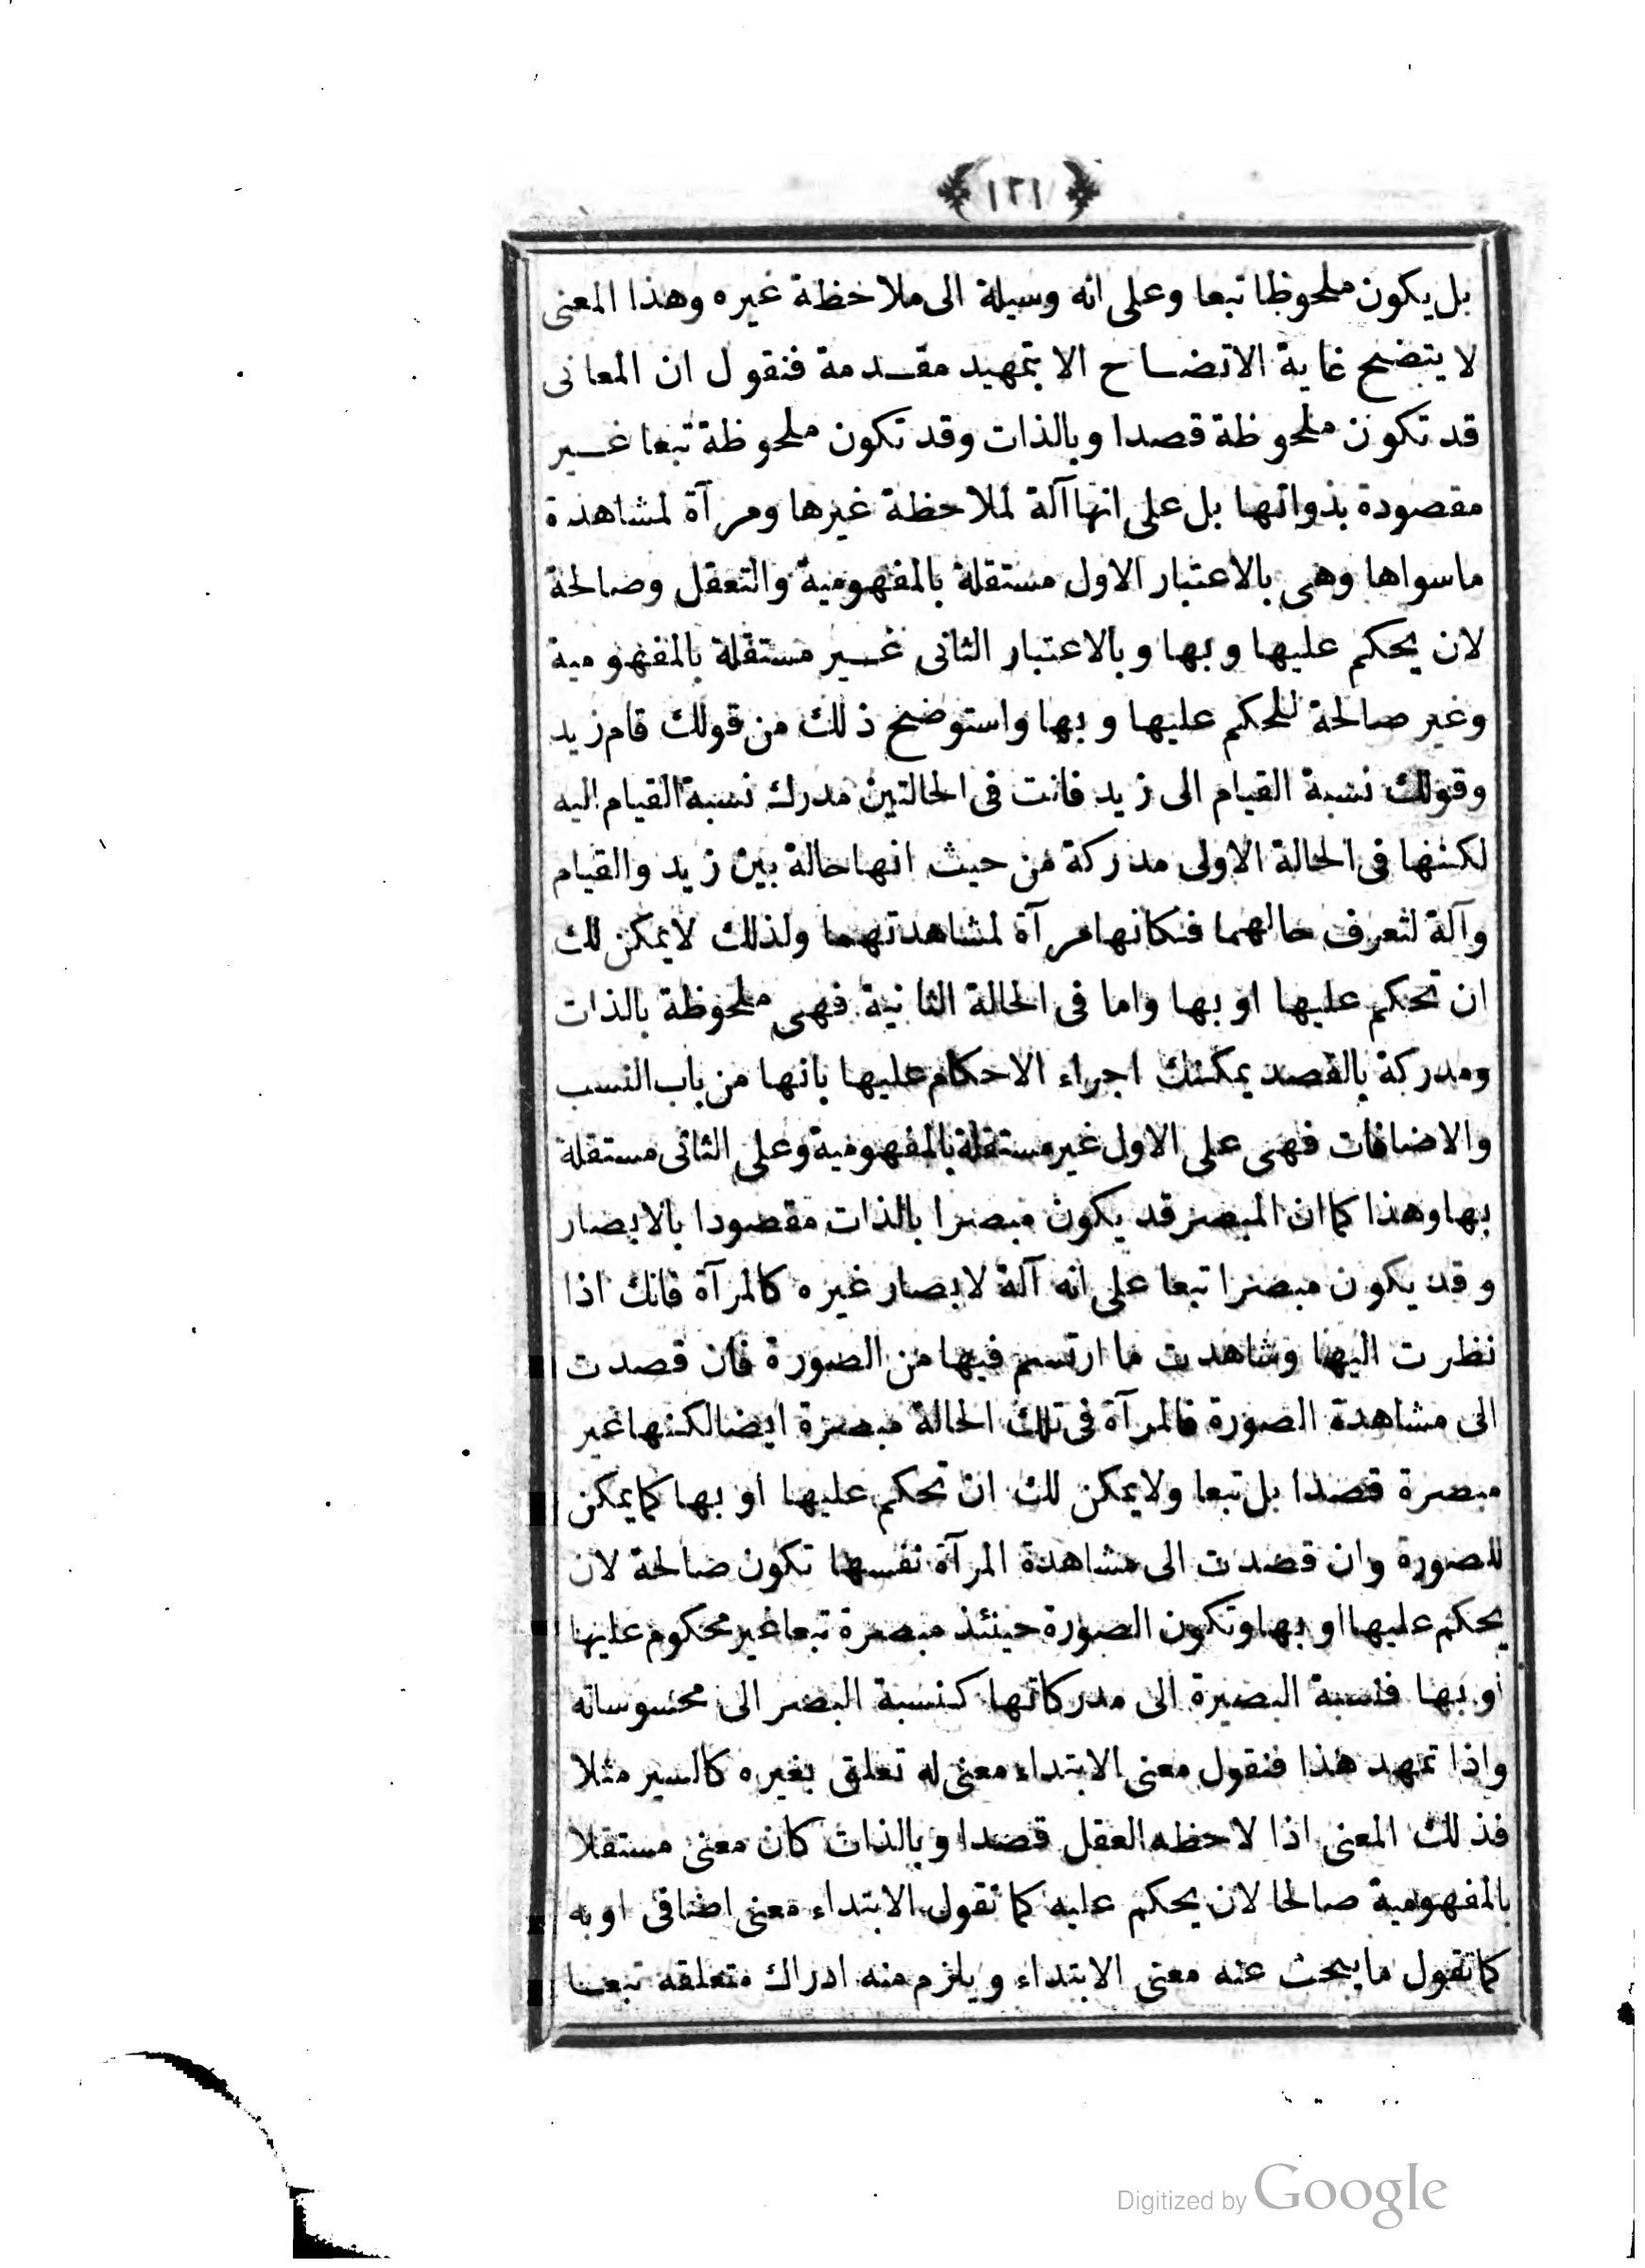 ﴿١٢١﴾
بل يكون ملحوظا تبعا وعلى انه وسيلة الى ملاحظة غيره وهذا المعنى
لا يتضح غاية الاتضاح الا بتمهيد مقدمة فنقول ان المعانى
قد تكون ملحوظة قصدا وبالذات وقد تكون ملحوظة تبعا غير
مقصودة بذواتها بل على انها آلة لملاحظة غيرها ومرآة لمشاهدة
ماسواها وهى بالاعتبار الاول مستقلة بالمفهومية والتعقل وصالحة
لان يحكم عليها وبها وبالاعتبار الثانى غير مستقلة بالمفهومية
وغير صالحة للحكم عليها وبها واستوضح ذلك من قولك قام زيد
وقولك نسبة القيام الى زيد فانت فى الحالتين مدرك نسبة القيام اليه
لكنها فى الحالة الاولى مدركة من حيث انها حالة بين زيد والقيام
وآلة لتعرف حالهما فكانها مرآة لمشاهدتهما ولذلك لايمكن لك
ان تحكم عليها او بها واما فى الحالة الثانية فهى ملحوظة بالذات
ومدركة بالقصد يمكنك اجراء الاحكام عليها بانها من باب النسب
والاضافات فهى على الاول غير مستقلة بالمفهومية وعلى الثانى مستقلة
بها وهذا كما ان المبصر قد يكون مبصرا بالذات مقصودا بالابصار
وقد يكون مبصرا تبعا على انه آلة لابصار غيره كالمرآة فانك اذا
نظرت اليها وشاهدت ما ارتسم فيها من الصورة فان قصدت
الى مشاهدة الصورة فالمرآة فى تلك الحالة مبصرة ايضا لكنها غير
مبصرة قصدا بل تبعا ولايمكن لك ان تحكم عليها او بها كما يمكن
للصورة وان قصدت الى مشاهدة المرآة نفسها تكون صالحة لان
يحكم عليها او بها وتكون الصورة حينئذ مبصرة تبعا غير محكوم عليها
او بها فنسبة البصيرة الى مدركاتها كنسبة البصر الى محسوساته
واذا تمهد هذا فنقول معنى الابتداء معنى له تعلق بغيره كالسير مثلا
فذلك المعنى اذا لاحظه العقل قصدا وبالذات كان معنى مستقلا
بالمفهومية صالحا لان يحكم عليه كما تقول الابتداء معنى اضافى او به
كما تقول ما يبحث عنه معنى الابتداء ويلزم منه ادراك متعلقه تبعا
Digitized by Google